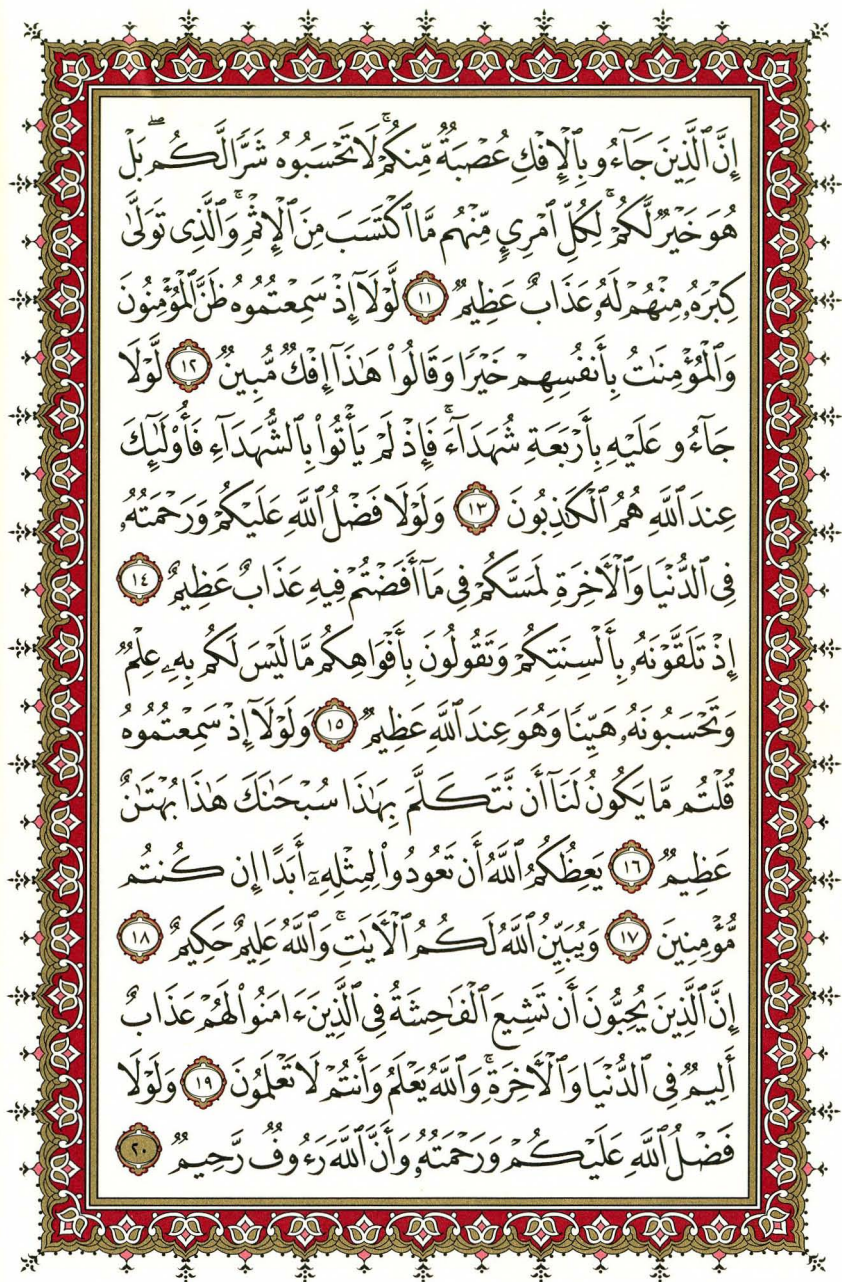 إِنَّ ٱلَّذِينَ جَآءُو بِٱلْإِفْكِ عُصْبَةٌ مِّنكُمْ ۚ لَا تَحْسَبُوهُ شَرًّا لَّكُم ۖ بَلْ
هُوَ خَيْرٌ لَّكُمْ ۚ لِكُلِّ ٱمْرِئٍ مِّنْهُم مَّا ٱكْتَسَبَ مِنَ ٱلْإِثْمِ ۚ وَٱلَّذِى تَوَلَّىٰ
كِبْرَهُۥ مِنْهُمْ لَهُۥ عَذَابٌ عَظِيمٌ ١١ لَّوْلَآ إِذْ سَمِعْتُمُوهُ ظَنَّ ٱلْمُؤْمِنُونَ
وَٱلْمُؤْمِنَٰتُ بِأَنفُسِهِمْ خَيْرًا وَقَالُوا۟ هَٰذَآ إِفْكٌ مُّبِينٌ ١٢ لَّوْلَا
جَآءُو عَلَيْهِ بِأَرْبَعَةِ شُهَدَآءَ ۚ فَإِذْ لَمْ يَأْتُوا۟ بِٱلشُّهَدَآءِ فَأُو۟لَٰٓئِكَ
عِندَ ٱللَّهِ هُمُ ٱلْكَٰذِبُونَ ١٣ وَلَوْلَا فَضْلُ ٱللَّهِ عَلَيْكُمْ وَرَحْمَتُهُۥ
فِى ٱلدُّنْيَا وَٱلْءَاخِرَةِ لَمَسَّكُمْ فِى مَآ أَفَضْتُمْ فِيهِ عَذَابٌ عَظِيمٌ ١٤
إِذْ تَلَقَّوْنَهُۥ بِأَلْسِنَتِكُمْ وَتَقُولُونَ بِأَفْوَاهِكُم مَّا لَيْسَ لَكُم بِهِۦ عِلْمٌ
وَتَحْسَبُونَهُۥ هَيِّنًا وَهُوَ عِندَ ٱللَّهِ عَظِيمٌ ١٥ وَلَوْلَآ إِذْ سَمِعْتُمُوهُ
قُلْتُم مَّا يَكُونُ لَنَآ أَن نَّتَكَلَّمَ بِهَٰذَا سُبْحَٰنَكَ هَٰذَا بُهْتَٰنٌ
عَظِيمٌ ١٦ يَعِظُكُمُ ٱللَّهُ أَن تَعُودُوا۟ لِمِثْلِهِۦٓ أَبَدًا إِن كُنتُم
مُّؤْمِنِينَ ١٧ وَيُبَيِّنُ ٱللَّهُ لَكُمُ ٱلْءَايَٰتِ ۚ وَٱللَّهُ عَلِيمٌ حَكِيمٌ ١٨
إِنَّ ٱلَّذِينَ يُحِبُّونَ أَن تَشِيعَ ٱلْفَٰحِشَةُ فِى ٱلَّذِينَ ءَامَنُوا۟ لَهُمْ عَذَابٌ
أَلِيمٌ فِى ٱلدُّنْيَا وَٱلْءَاخِرَةِ ۚ وَٱللَّهُ يَعْلَمُ وَأَنتُمْ لَا تَعْلَمُونَ ١٩ وَلَوْلَا
فَضْلُ ٱللَّهِ عَلَيْكُمْ وَرَحْمَتُهُۥ وَأَنَّ ٱللَّهَ رَءُوفٌ رَّحِيمٌ ٢٠